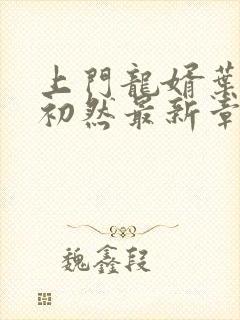 上門龍婿葉
初然最新章
魏鑫段